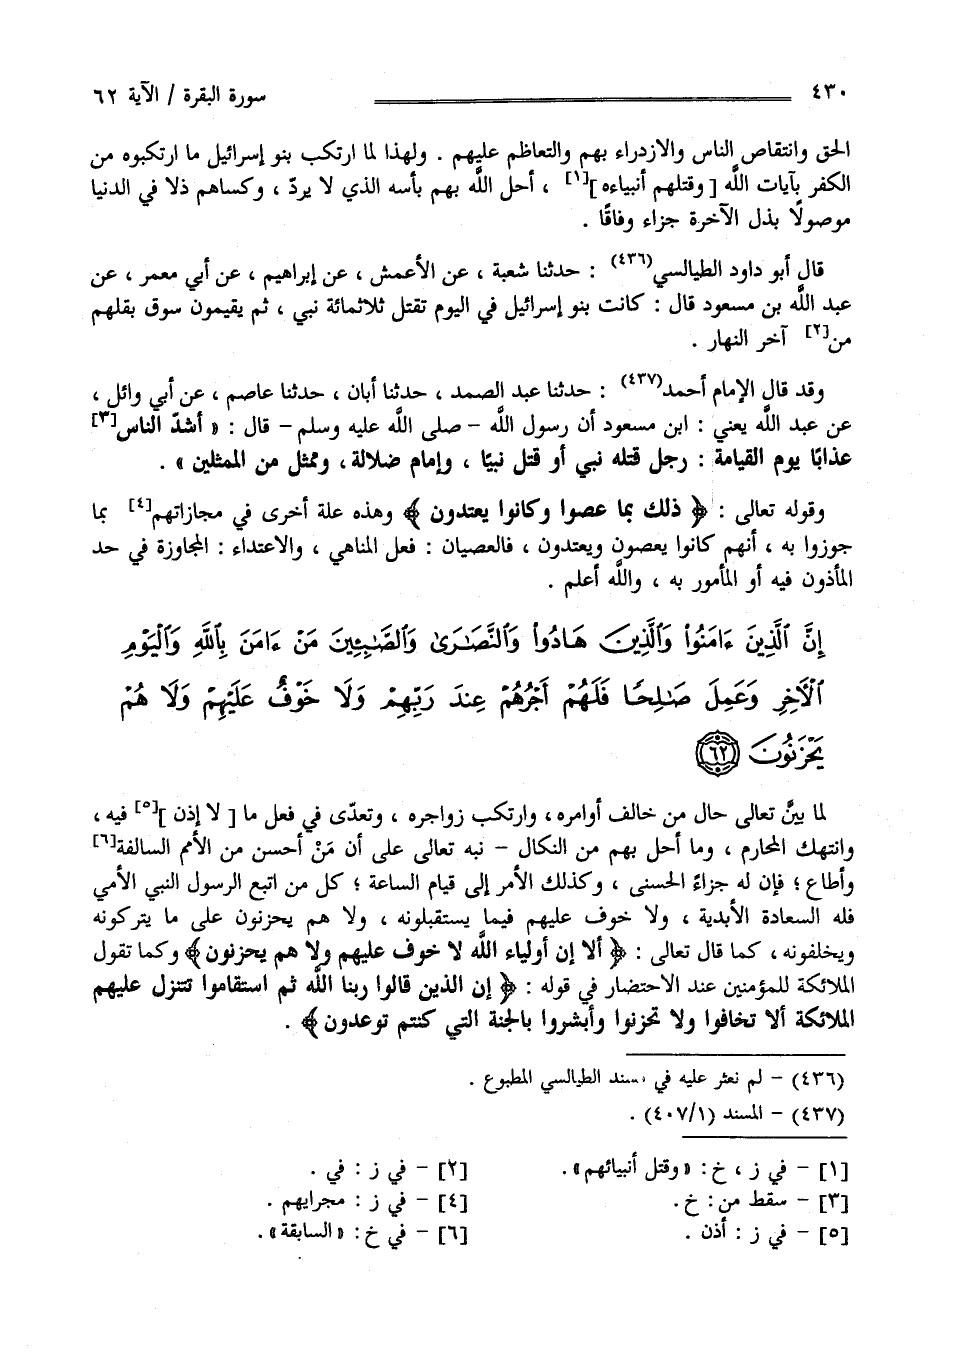 ٤٣٠ سورة البقرة / الآية ٦٢
الحق وانتقاص الناس والازدراء بهم والتعاظم عليهم . ولهذا لما ارتكب بنو إسرائيل ما ارتكبوه من
الكفر بآيات اللَّه [ وقتلهم أنبياءه ][١] ، أحل اللَّه بهم بأسه الذي لا يردّ ، وكساهم ذلا في الدنيا
موصولًا بذل الآخرة جزاء وفاقًا .
قال أبو داود الطيالسي(٤٣٦) : حدثنا شعبة ، عن الأعمش ، عن إبراهيم ، عن أبي معمر ، عن
عبد اللَّه بن مسعود قال : كانت بنو إسرائيل في اليوم تقتل ثلاثمائة نبي ، ثم يقيمون سوق بقلهم
من[٢] آخر النهار .
وقد قال الإمام أحمد(٤٣٧) : حدثنا عبد الصمد ، حدثنا أبان ، حدثنا عاصم ، عن أبي وائل ،
عن عبد الله يعني : ابن مسعود أن رسول اللَّه – صلى اللَّه عليه وسلم – قال : « أشدّ الناس[٣]
عذابًا يوم القيامة : رجل قتله نبي أو قتل نبيًا ، وإمام ضلالة ، وممثل من الممثلين » .
وقوله تعالى : ﴿ ذلك بما عصوا وكانوا يعتدون ﴾ وهذه علة أخرى في مجازاتهم[٤] بما
جوزوا به ، أنهم كانوا يعصون ويعتدون ، فالعصيان : فعل المناهي ، والاعتداء : المجاوزة في حد
المأذون فيه أو المأمور به ، واللَّه أعلم .
إِنَّ ٱلَّذِينَ ءَامَنُوا۟ وَٱلَّذِينَ هَادُوا۟ وَٱلنَّصَـٰرَىٰ وَٱلصَّـٰبِـِٔينَ مَنْ ءَامَنَ بِٱللَّهِ وَٱلْيَوْمِ
ٱلْـَٔاخِرِ وَعَمِلَ صَـٰلِحًا فَلَهُمْ أَجْرُهُمْ عِندَ رَبِّهِمْ وَلَا خَوْفٌ عَلَيْهِمْ وَلَا هُمْ
يَحْزَنُونَ ٦٢
لما بيَّن تعالى حال من خالف أوامره ، وارتكب زواجره ، وتعدّى في فعل ما [ لا إذن ][٥] فيه ،
وانتهك المحارم ، وما أحل بهم من النكال – نبه تعالى على أن مَنْ أحسن من الأمم السالفة[٦]
وأطاع ؛ فإن له جزاءً الحسنى ، وكذلك الأمر إلى قيام الساعة ؛ كل من اتبع الرسول النبي الأمي
فله السعادة الأبدية ، ولا خوف عليهم فيما يستقبلونه ، ولا هم يحزنون على ما يتركونه
ويخلفونه ، كما قال تعالى : ﴿ ألا إن أولياء اللَّه لا خوف عليهم ولا هم يحزنون ﴾ وكما تقول
الملائكة للمؤمنين عند الاحتضار في قوله : ﴿ إن الذين قالوا ربنا اللَّه ثم استقاموا تتنزل عليهم
الملائكة ألا تخافوا ولا تحزنوا وأبشروا بالجنة التي كنتم توعدون ﴾ .
(٤٣٦) – لم نعثر عليه في مسند الطيالسي المطبوع .
(٤٣٧) – المسند (٤٠٧/١) .
[١] – في ز ، خ : « وقتل أنبيائهم » . [٢] – في ز : في .
[٣] – سقط من : خ . [٤] – في ز : مجرايهم .
[٥] – في ز : أذن . [٦] – في خ : « السابقة » .